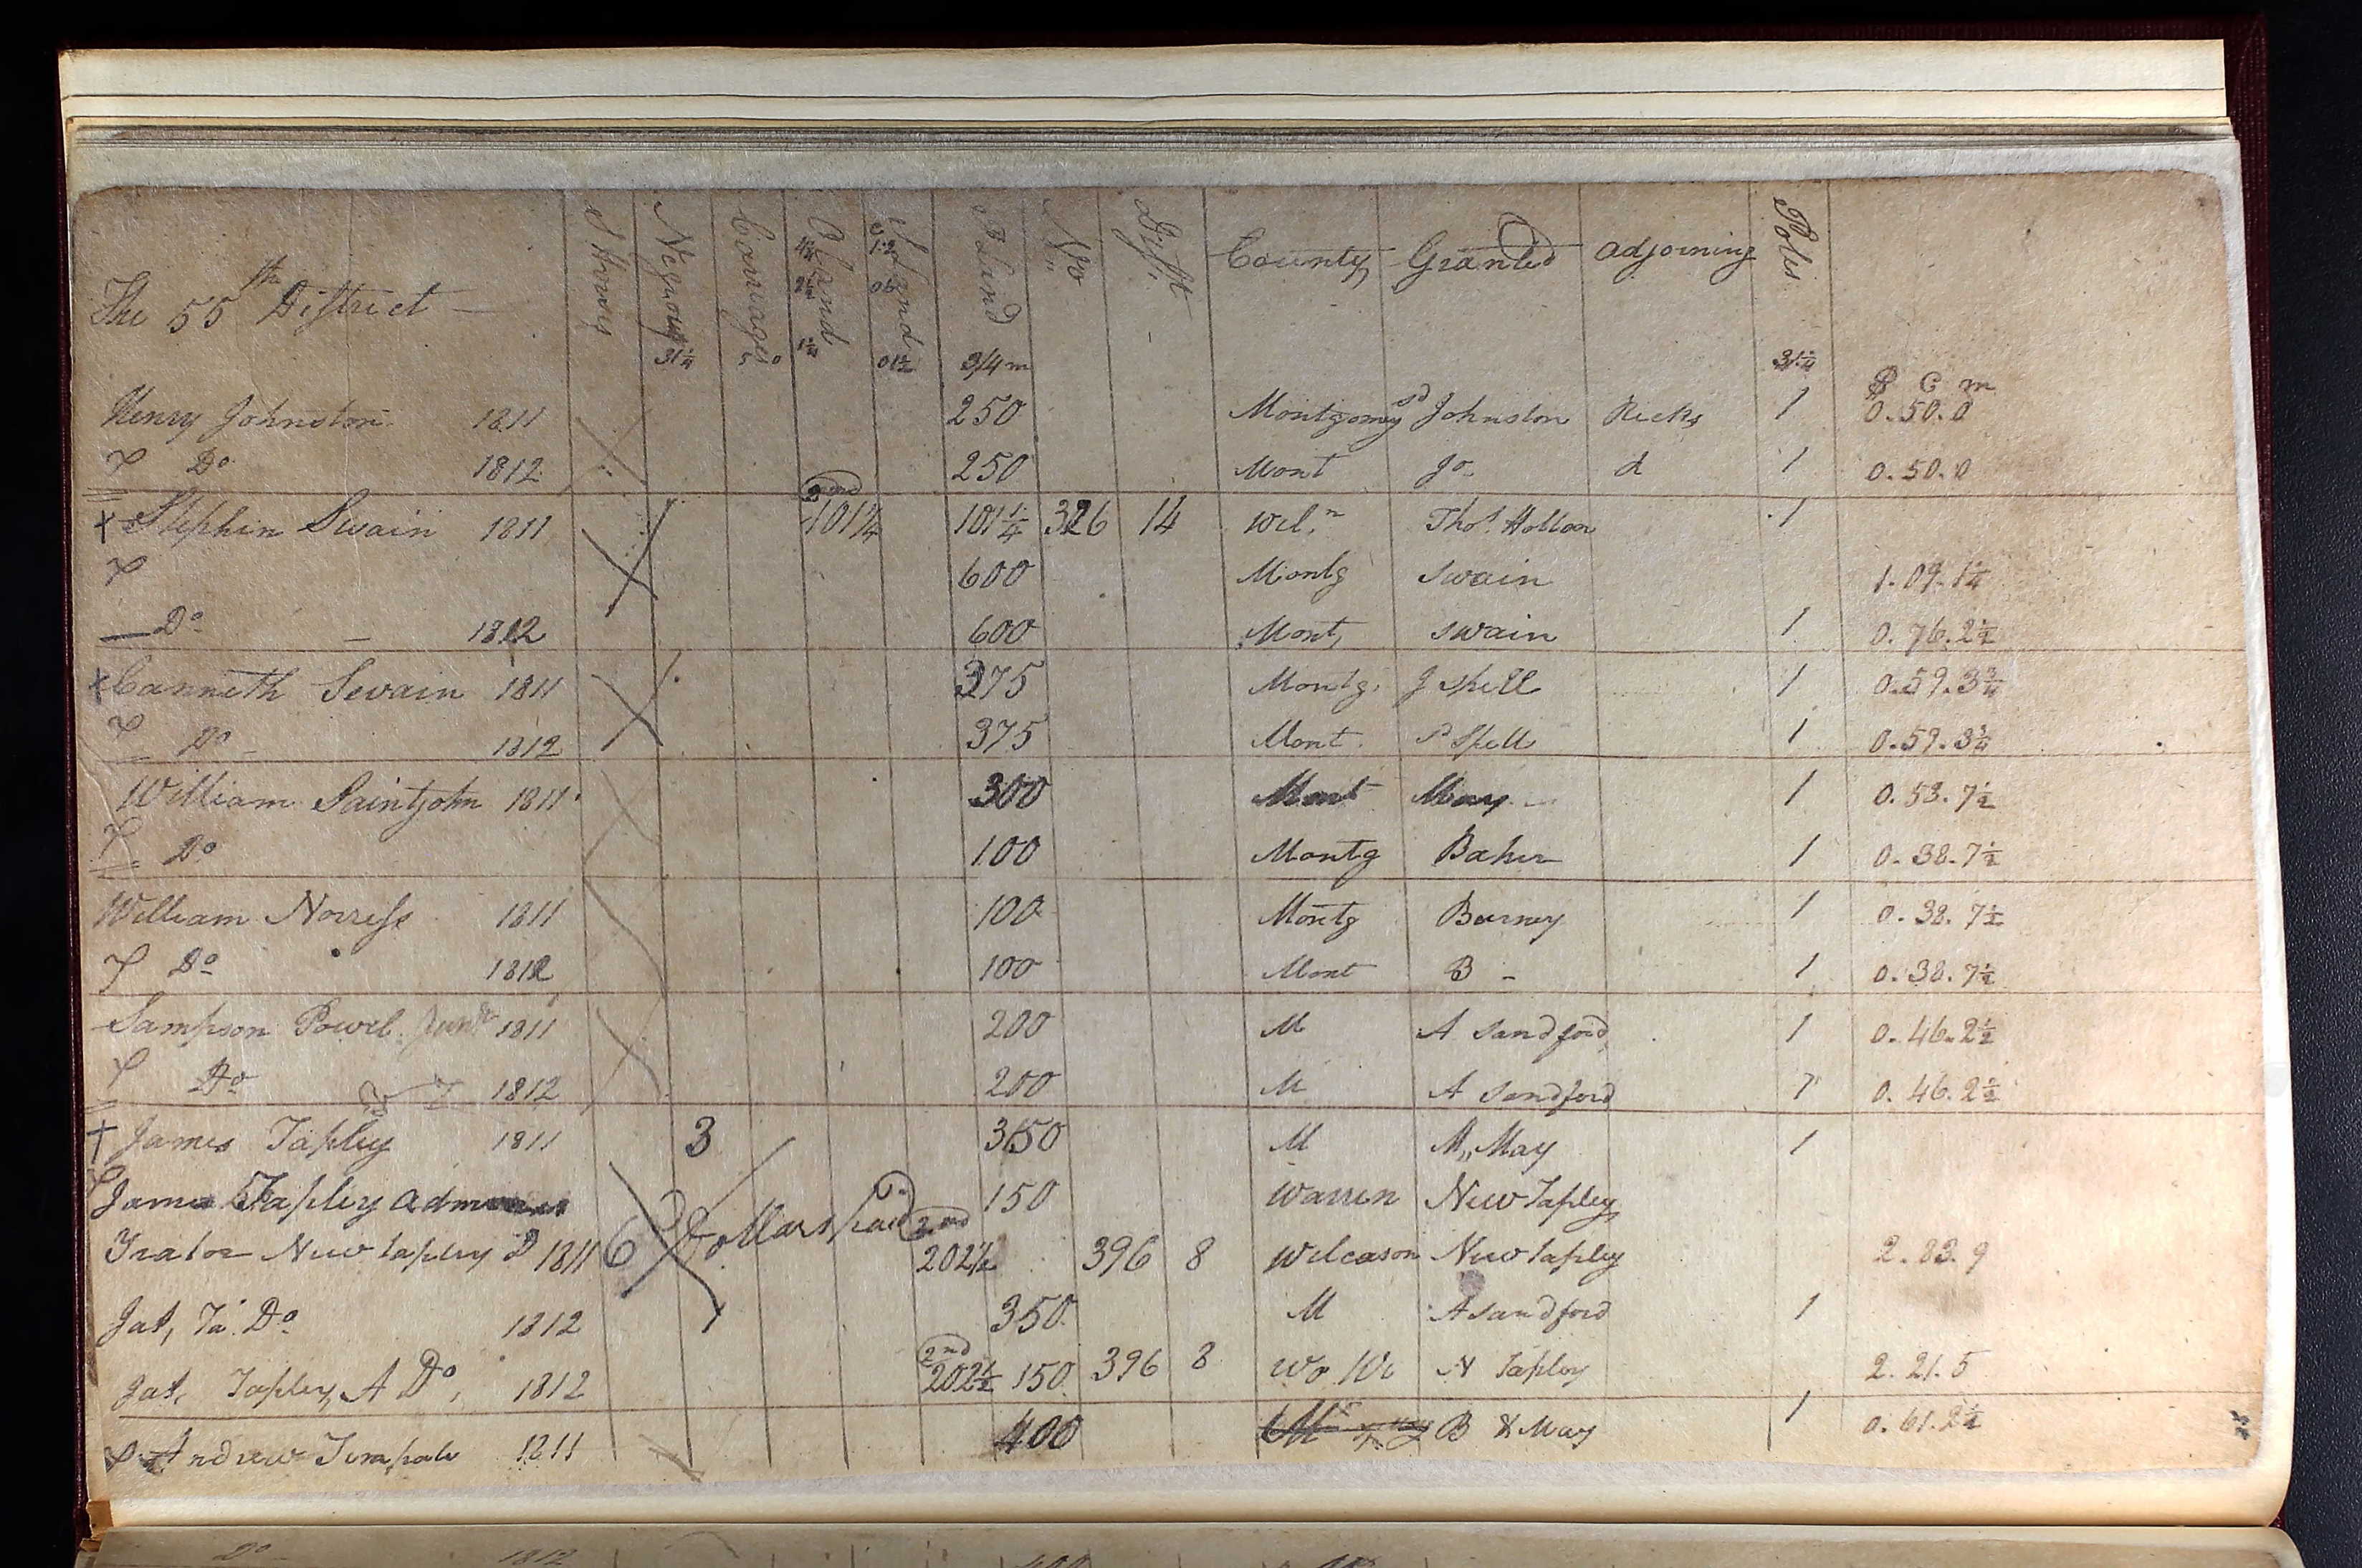 The 55th District — Negroes Carriages Land Land P Land No Dist County Granted adjoining Poles
31¼ 3/4 m 01½ 31¼
$ C m
Henry Johnston 1811 250 Montgomey Johnston Ricks 1 0.50.0
Do 1812 250 Mont Jo d 1 0.50.0
2nd
x Stephen Swain 1811 101¼ 101¼ 326 14 Wil.n Thos. Holton 1
600 Montg Swain 1.09.1¼
— Do — 1812 600 Mont, Swain 1 0.76.2½
x Canneth Swain 1811 375 Montg. J Spell 1 0.59.3¾
Do 1812 375 Mont Spell 1 0.59.3¾
William Saintjohn 1811 300 Mont May 1 0.53.7½
Do 100 Montg Baker 1 0.38.7½
William Norress 1811 100 Montg Burney 1 0.38.7½
Do 1812 100 Mont B - 1 0.38.7½
Sampson Powel Junr 1811 200 M A Sandford 1 0.46.2½
Do 1812 200 M A Sandford 1 0.46.2½
† James Tapley 1811 3 350 M M,, May 1
James Tapley adm 150 Warren New Tapley
6 Dollars paid 2nd
Trator New tapley D 1811 202½ 396 8 Wilcason New Tapley 2.83.9
Jas, Ta. Do 1812 350 M A Sandford 1
2nd
Jas, Tapley A Do, 1812 202½ 150 396 8 Wa Wi N Tapley 2.21.5
Andrew Timpale 1811 400 B & May 1 0.61.2½
Do 1812 400